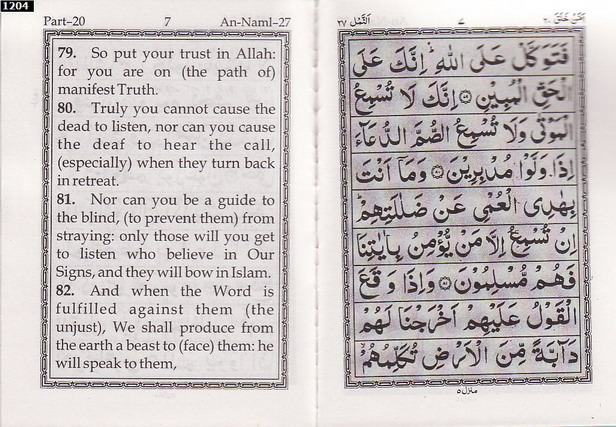 1204
Part-20 7 An-Naml-27
79. So put your trust in Allah:
for you are on (the path of)
manifest Truth.
80. Truly you cannot cause the
dead to listen, nor can you cause
the deaf to hear the call,
(especially) when they turn back
in retreat.
81. Nor can you be a guide to
the blind, (to prevent them) from
straying: only those will you get
to listen who believe in Our
Signs, and they will bow in Islam.
82. And when the Word is
fulfilled against them (the
unjust), We shall produce from
the earth a beast to (face) them: he
will speak to them,
اَمَّنْ خَلَقَ ٢٠ ٧ اَلنَّمْل ٢٧
فَتَوَكَّلْ عَلَى اللّٰهِ ؕ اِنَّكَ عَلَى
الْحَقِّ الْمُبِيْنِ ۝۷۹ اِنَّكَ لَا تُسْمِعُ
الْمَوْتٰى وَلَا تُسْمِعُ الصُّمَّ الدُّعَآءَ
اِذَا وَلَّوْا مُدْبِرِيْنَ ۝۸۰ وَمَاۤ اَنْتَ
بِهٰدِى الْعُمْىِ عَنْ ضَلٰلَتِهِمْ ؕ
اِنْ تُسْمِعُ اِلَّا مَنْ يُّؤْمِنُ بِاٰيٰتِنَا
فَهُمْ مُّسْلِمُوْنَ ۝۸۱ وَاِذَا وَقَعَ
الْقَوْلُ عَلَيْهِمْ اَخْرَجْنَا لَهُمْ
دَآبَّةً مِّنَ الْاَرْضِ تُكَلِّمُهُمْ ۙ
منزل ٥